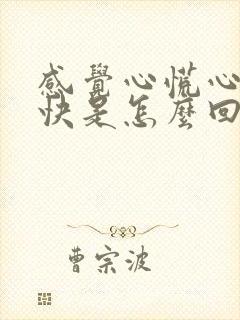 感覺心慌心
快是怎麼回
曹宗波